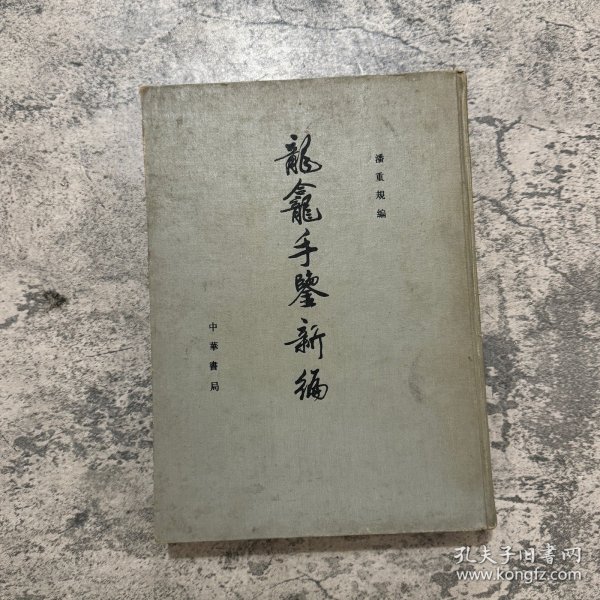 潘重規編
龍龕手鑒新編
中華書局
孔夫子旧书网
www.kongfz.com